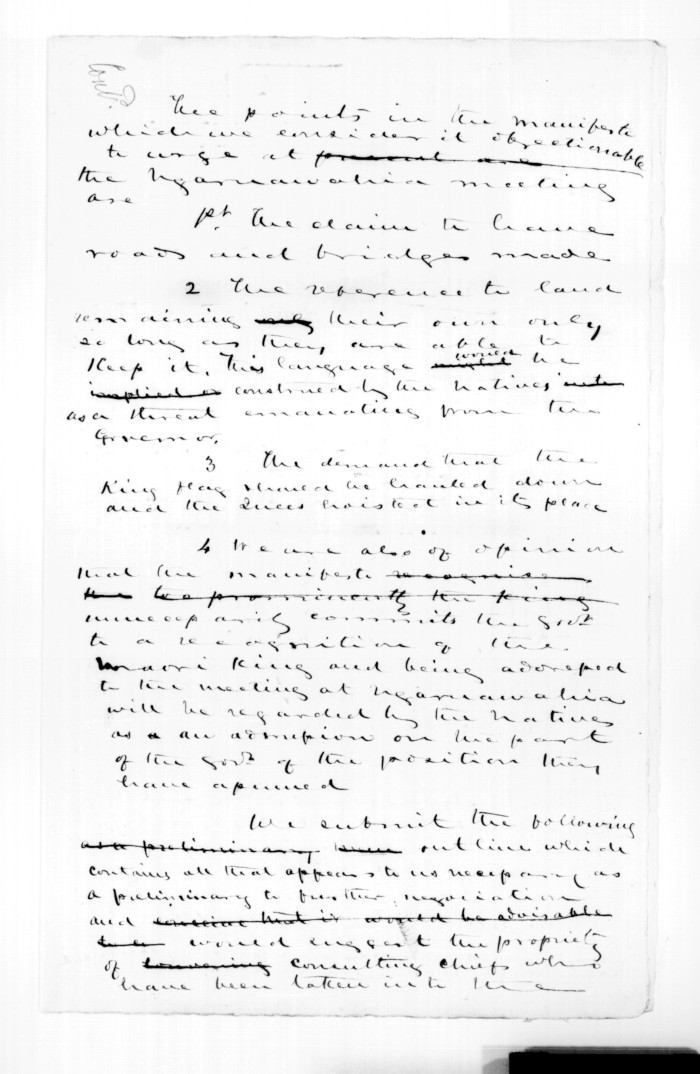 Conf.
The points in the manifesto
which we consider it objectionable
to urge at present are
the Ngaruawahia meeting
are
1st. The claim to have
roads and bridges made
2 The reference to land
remaining only their own only
so long as they are able to
Keep it. This language might would be
implied as construed by the Natives into
as a threat emanating from the
Governor.
3 The demand that the
King flag should be hauled down
and the Queens hoisted in its place
4 We are also of opinion
that the manifesto recognises
the too prominently the King
unnecessarily commits the Govt
to a recognition of the
Maori King and being addressed
to the meeting at Ngaruawahia
will be regarded by the Natives
as a an admission on the part
of the Govt of the position they
have assumed
We submit the following
as a preliminary outline which
contains all that appears to us necessary as
a preliminary to further negociation
and conceive that it would be advisable
would suggest the propriety
of convening consulting chiefs who
have been taken into the